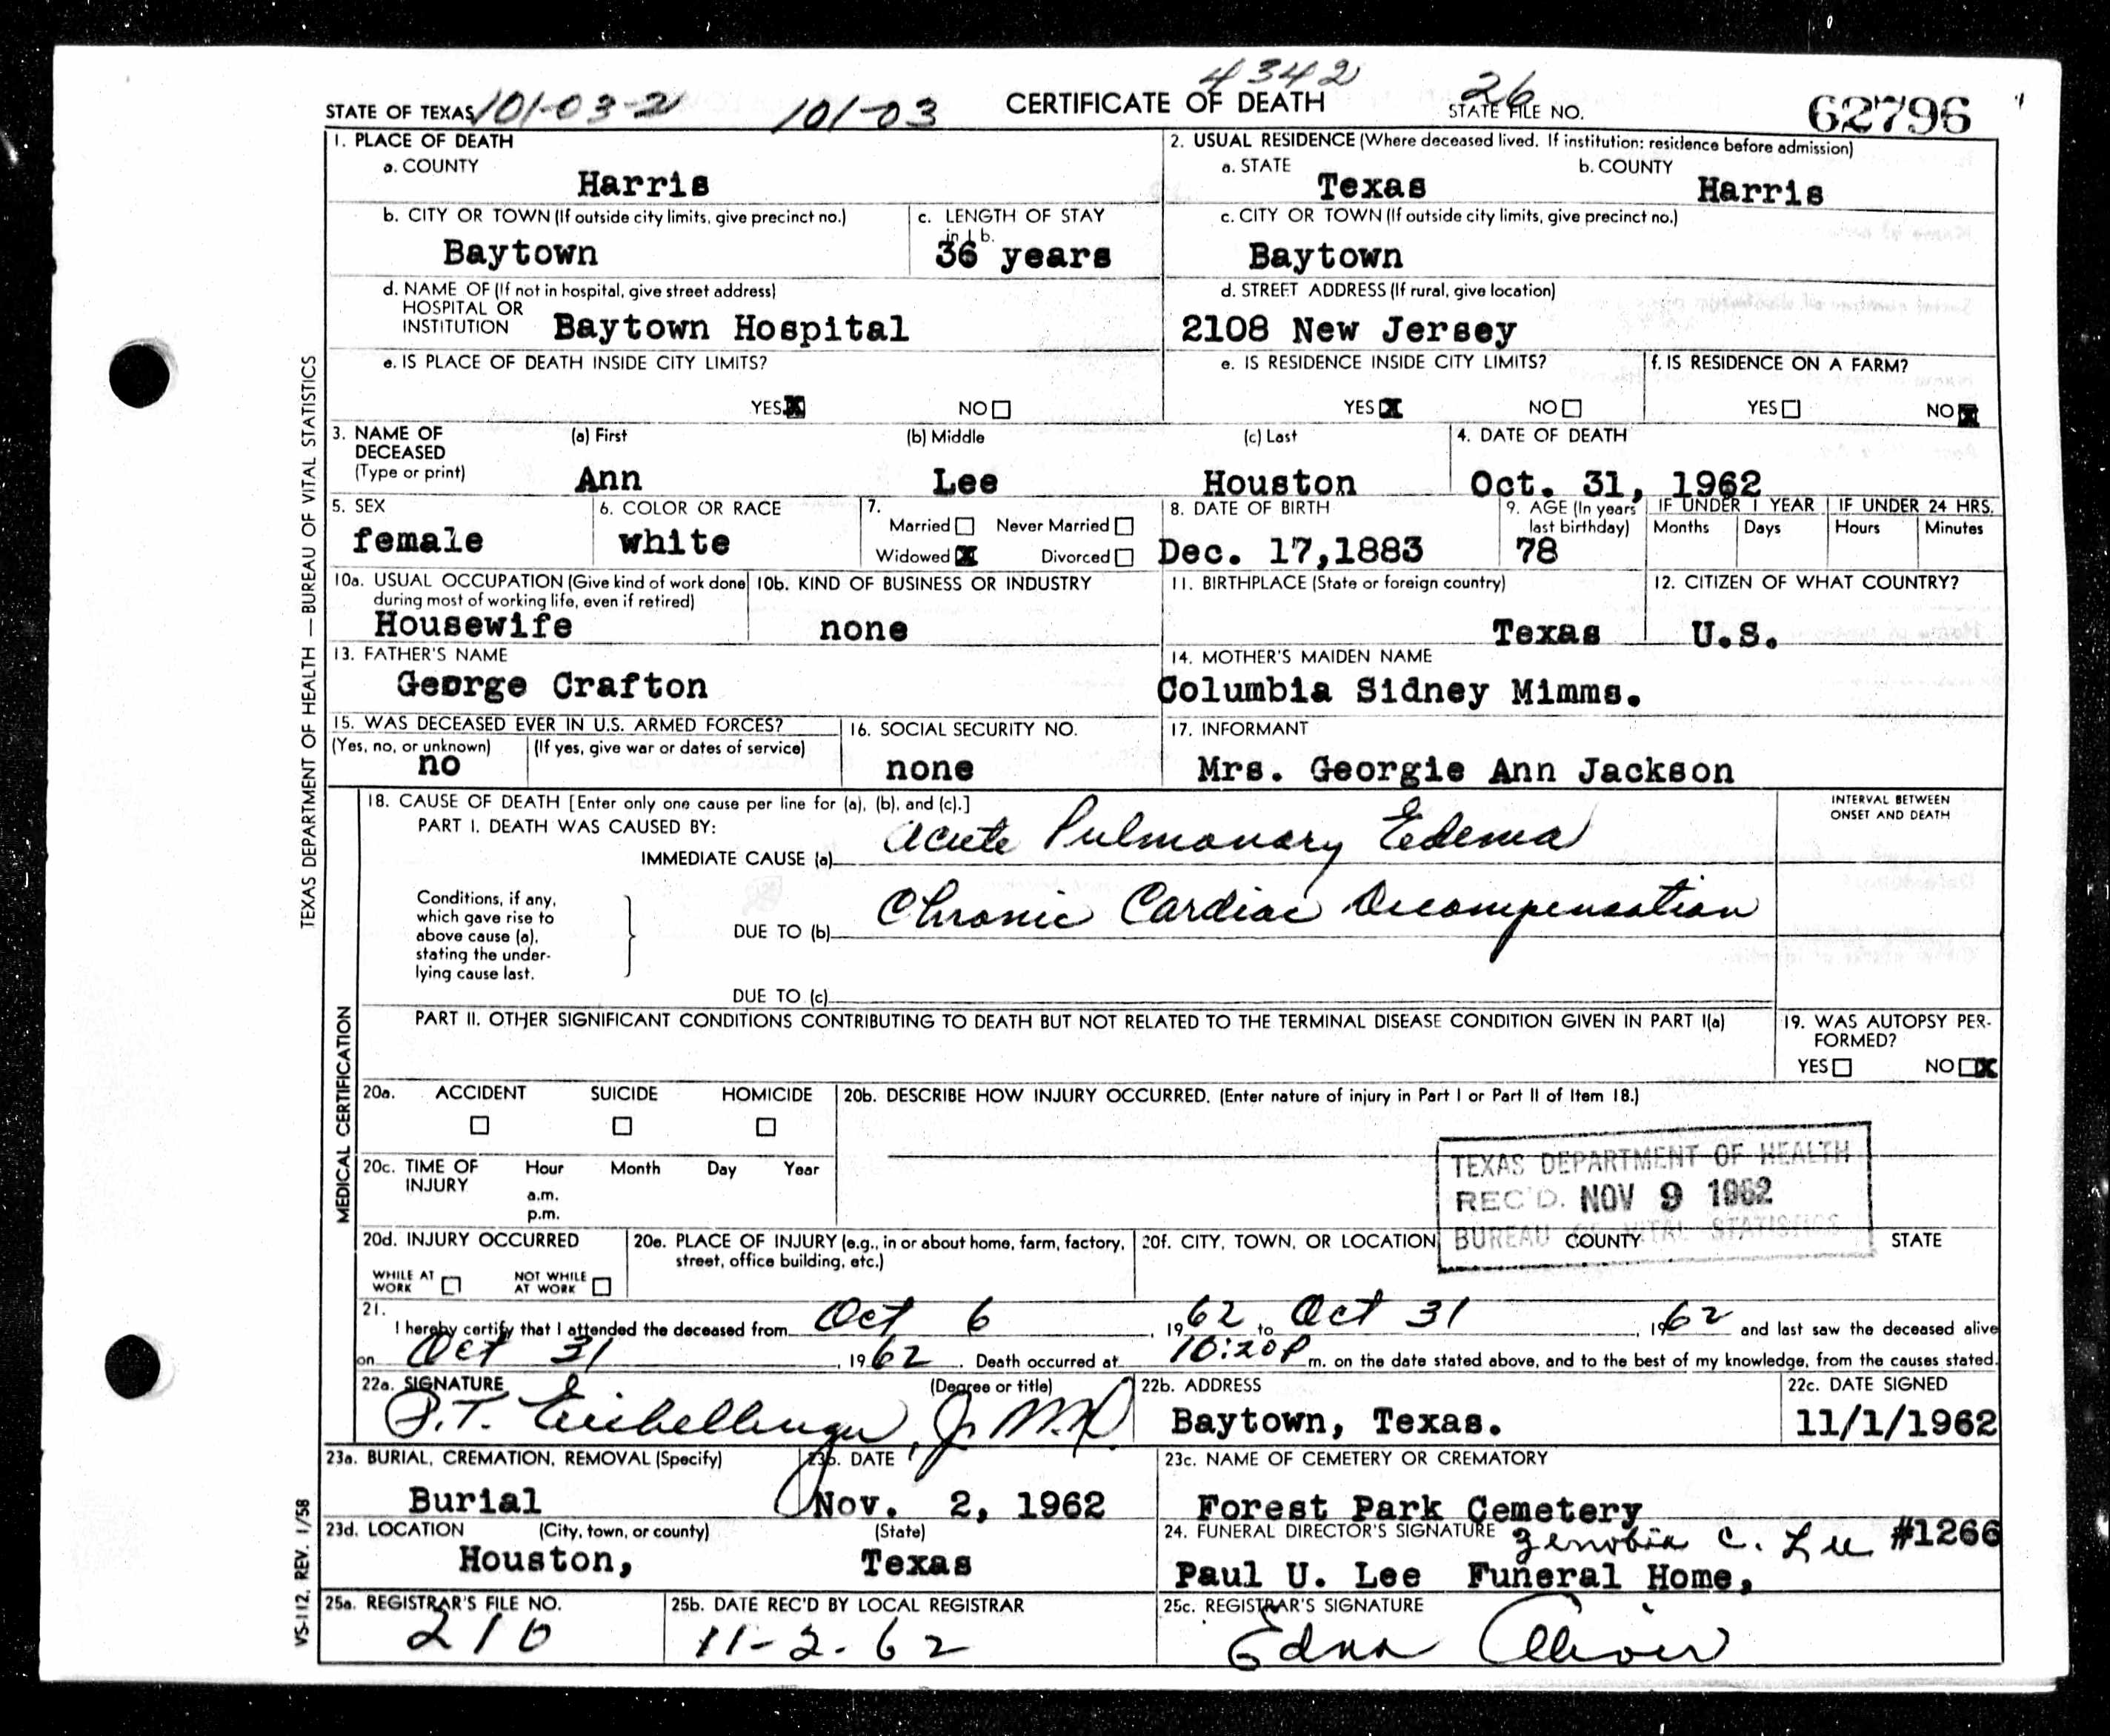 4342
STATE OF TEXAS 101-03-2 101-03 CERTIFICATE OF DEATH 26 STATE FILE NO. 62796
1. PLACE OF DEATH
a. COUNTY
Harris
2. USUAL RESIDENCE (Where deceased lived. If institution: residence before admission)
a. STATE b. COUNTY
Texas Harris
b. CITY OR TOWN (If outside city limits, give precinct no.)
Baytown
c. LENGTH OF STAY
in 1 b.
36 years
c. CITY OR TOWN (If outside city limits, give precinct no.)
Baytown
d. NAME OF (If not in hospital, give street address)
HOSPITAL OR
INSTITUTION Baytown Hospital
d. STREET ADDRESS (If rural, give location)
2108 New Jersey
e. IS PLACE OF DEATH INSIDE CITY LIMITS?
YES NO
e. IS RESIDENCE INSIDE CITY LIMITS?
YES NO
f. IS RESIDENCE ON A FARM?
YES NO
3. NAME OF
DECEASED
(Type or print)
(a) First (b) Middle (c) Last
Ann Lee Houston
4. DATE OF DEATH
Oct. 31, 1962
5. SEX
female
6. COLOR OR RACE
white
7.
Married Never Married
Widowed Divorced
8. DATE OF BIRTH
Dec. 17,1883
9. AGE (In years
last birthday)
78
IF UNDER 1 YEAR
Months Days
IF UNDER 24 HRS.
Hours Minutes
10a. USUAL OCCUPATION (Give kind of work done
during most of working life, even if retired)
Housewife
10b. KIND OF BUSINESS OR INDUSTRY
none
11. BIRTHPLACE (State or foreign country)
Texas
12. CITIZEN OF WHAT COUNTRY?
U.S.
13. FATHER'S NAME
George Crafton
14. MOTHER'S MAIDEN NAME
Columbia Sidney Mimms.
15. WAS DECEASED EVER IN U.S. ARMED FORCES?
(Yes, no, or unknown) (If yes, give war or dates of service)
no
16. SOCIAL SECURITY NO.
none
17. INFORMANT
Mrs. Georgie Ann Jackson
18. CAUSE OF DEATH [Enter only one cause per line for (a), (b), and (c).]
PART I. DEATH WAS CAUSED BY:
IMMEDIATE CAUSE (a) Acute Pulmonary Eedema
INTERVAL BETWEEN
ONSET AND DEATH
Conditions, if any,
which gave rise to
above cause (a),
stating the under-
lying cause last.
DUE TO (b) Chronic Cardiac Decompensation
DUE TO (c)
PART II. OTHER SIGNIFICANT CONDITIONS CONTRIBUTING TO DEATH BUT NOT RELATED TO THE TERMINAL DISEASE CONDITION GIVEN IN PART I(a)
19. WAS AUTOPSY PER-
FORMED?
YES NO
20a. ACCIDENT SUICIDE HOMICIDE
20b. DESCRIBE HOW INJURY OCCURRED. (Enter nature of injury in Part I or Part II of Item 18.)
20c. TIME OF
INJURY
Hour Month Day Year
a.m.
p.m.
TEXAS DEPARTMENT OF HEALTH
REC'D. NOV 9 1962
BUREAU OF VITAL STATISTICS
20d. INJURY OCCURRED
WHILE AT
WORK
NOT WHILE
AT WORK
20e. PLACE OF INJURY (e.g., in or about home, farm, factory,
street, office building, etc.)
20f. CITY, TOWN, OR LOCATION COUNTY STATE
21.
I hereby certify that I attended the deceased from Oct 6, 1962 to Oct 31, 1962 and last saw the deceased alive
on Oct 31, 1962. Death occurred at 10:20P m. on the date stated above, and to the best of my knowledge, from the causes stated.
22a. SIGNATURE (Degree or title)
Jr M.D.
22b. ADDRESS
Baytown, Texas.
22c. DATE SIGNED
11/1/1962
23a. BURIAL, CREMATION, REMOVAL (Specify)
Burial
23b. DATE
Nov. 2, 1962
23c. NAME OF CEMETERY OR CREMATORY
Forest Park Cemetery
23d. LOCATION (City, town, or county) (State)
Houston, Texas
24. FUNERAL DIRECTOR'S SIGNATURE Zenobia C. Lee #1266
Paul U. Lee Funeral Home,
25a. REGISTRAR'S FILE NO.
210
25b. DATE REC'D BY LOCAL REGISTRAR
11-2-62
25c. REGISTRAR'S SIGNATURE
Edna Oliver
TEXAS DEPARTMENT OF HEALTH — BUREAU OF VITAL STATISTICS
MEDICAL CERTIFICATION
VS-112, REV. 1/58